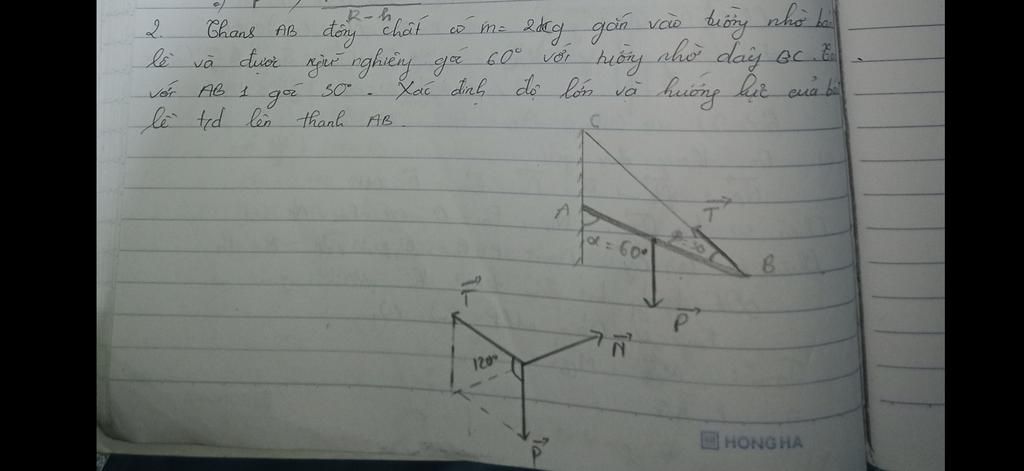 R - h
2. Thanh AB đồng chất có m = 2kg gắn vào tường nhờ bản
lề và được giữ nghiêng góc 60° với tường nhờ dây BC.
với AB 1 góc 30°. Xác định độ lớn và hướng lực của bản
lề t/d lên thanh AB.
C
T
A
α = 60°
30°
B
P
T
N
120°
P
HONG HA